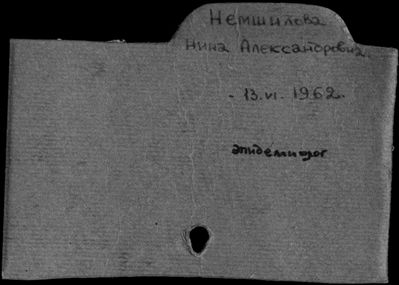 Немшилова
Нина Александровна.
- 13.VI. 1962.
эпидемиолог